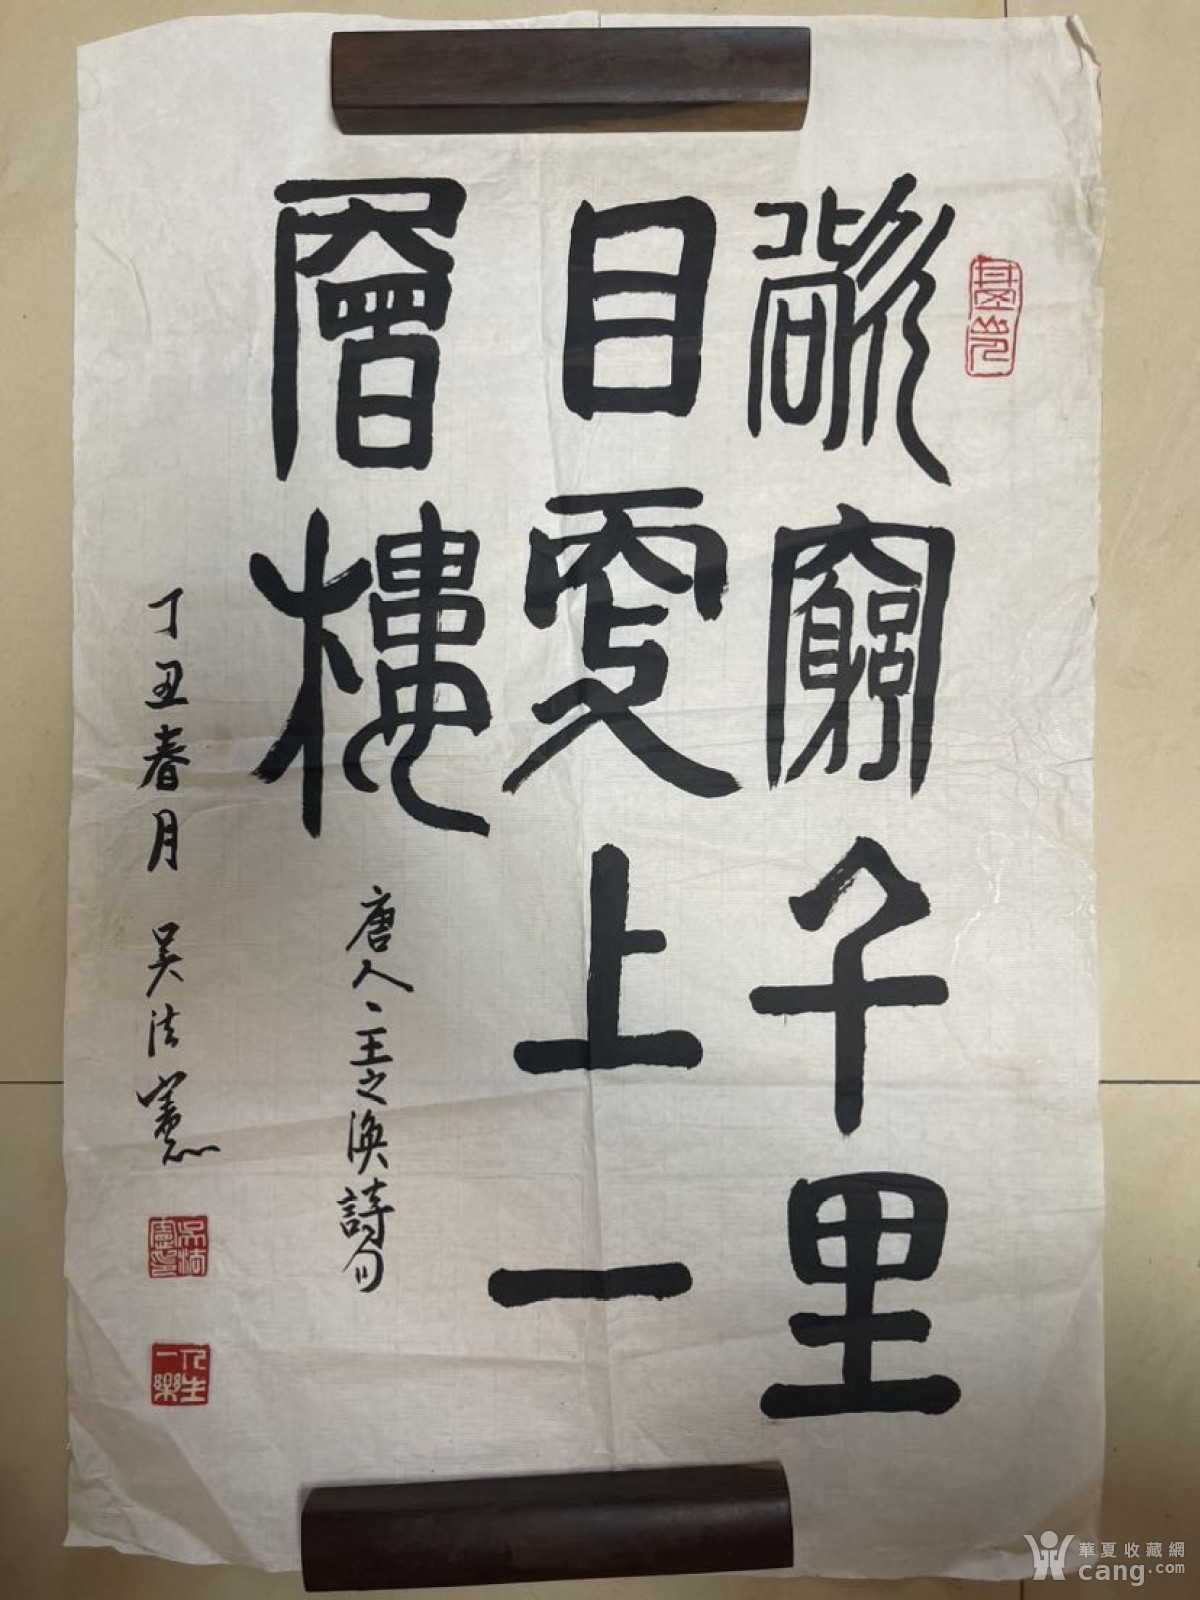 欲窮千里
目更上一
層樓
唐人王之渙詩句
丁丑春月 吴法憲
吳法憲印
人生一樂
華夏收藏網
cang.com